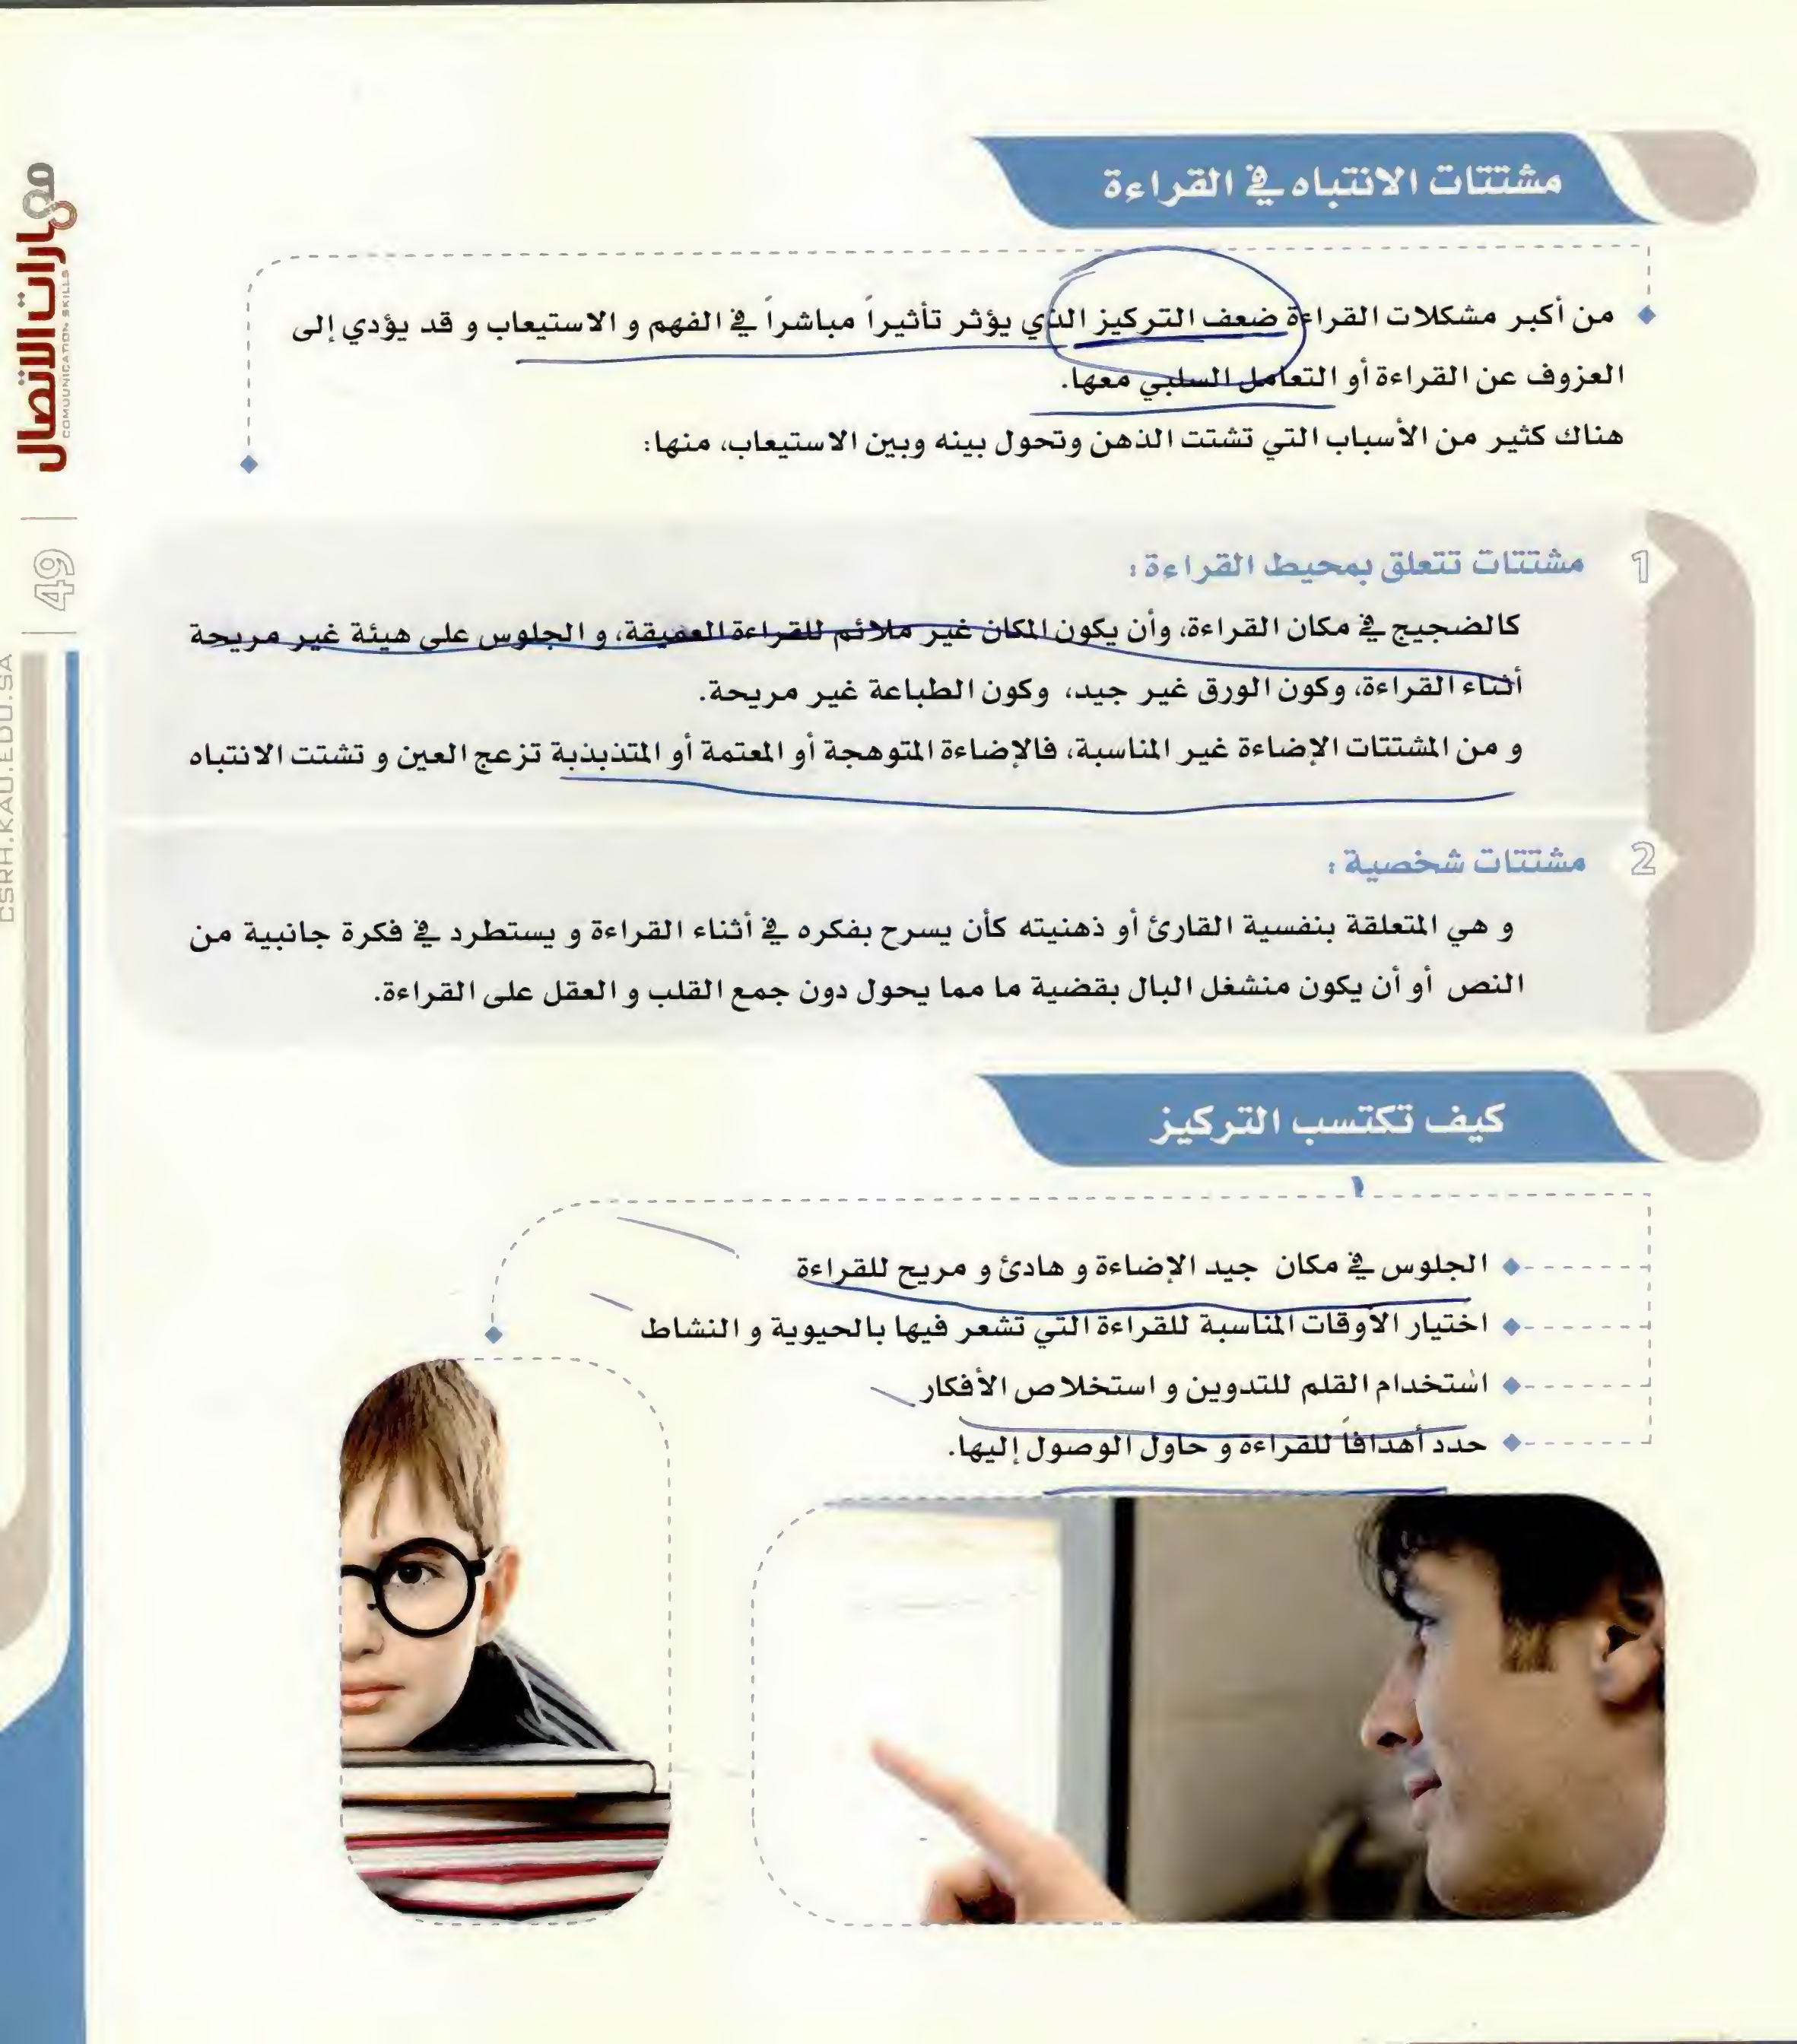 مشتتات الانتباه في القراءة
من أكبر مشكلات القراءة ضعف التركيز الذي يؤثر تأثيراً مباشراً في الفهم و الاستيعاب و قد يؤدي إلى
العزوف عن القراءة أو التعامل السلبي معها.
هناك كثير من الأسباب التي تشتت الذهن وتحول بينه وبين الاستيعاب، منها:
1 مشتتات تتعلق بمحيط القراءة :
كالضجيج في مكان القراءة، وأن يكون المكان غير ملائم للقراءة العميقة، و الجلوس على هيئة غير مريحة
أثناء القراءة، وكون الورق غير جيد، وكون الطباعة غير مريحة.
و من المشتتات الإضاءة غير المناسبة، فالإضاءة المتوهجة أو المعتمة أو المتذبذبة تزعج العين و تشتت الانتباه
2 مشتتات شخصية :
و هي المتعلقة بنفسية القارئ أو ذهنيته كأن يسرح بفكره في أثناء القراءة و يستطرد في فكرة جانبية من
النص أو أن يكون منشغل البال بقضية ما مما يحول دون جمع القلب و العقل على القراءة.
كيف تكتسب التركيز
الجلوس في مكان جيد الإضاءة و هادئ و مريح للقراءة
اختيار الأوقات المناسبة للقراءة التي تشعر فيها بالحيوية و النشاط
استخدام القلم للتدوين و استخلاص الأفكار
حدد أهدافاً للقراءة و حاول الوصول إليها.
مهارات الاتصال
COMOUNICATION SKILLS
49
CSRH.KAU.EDU.SA